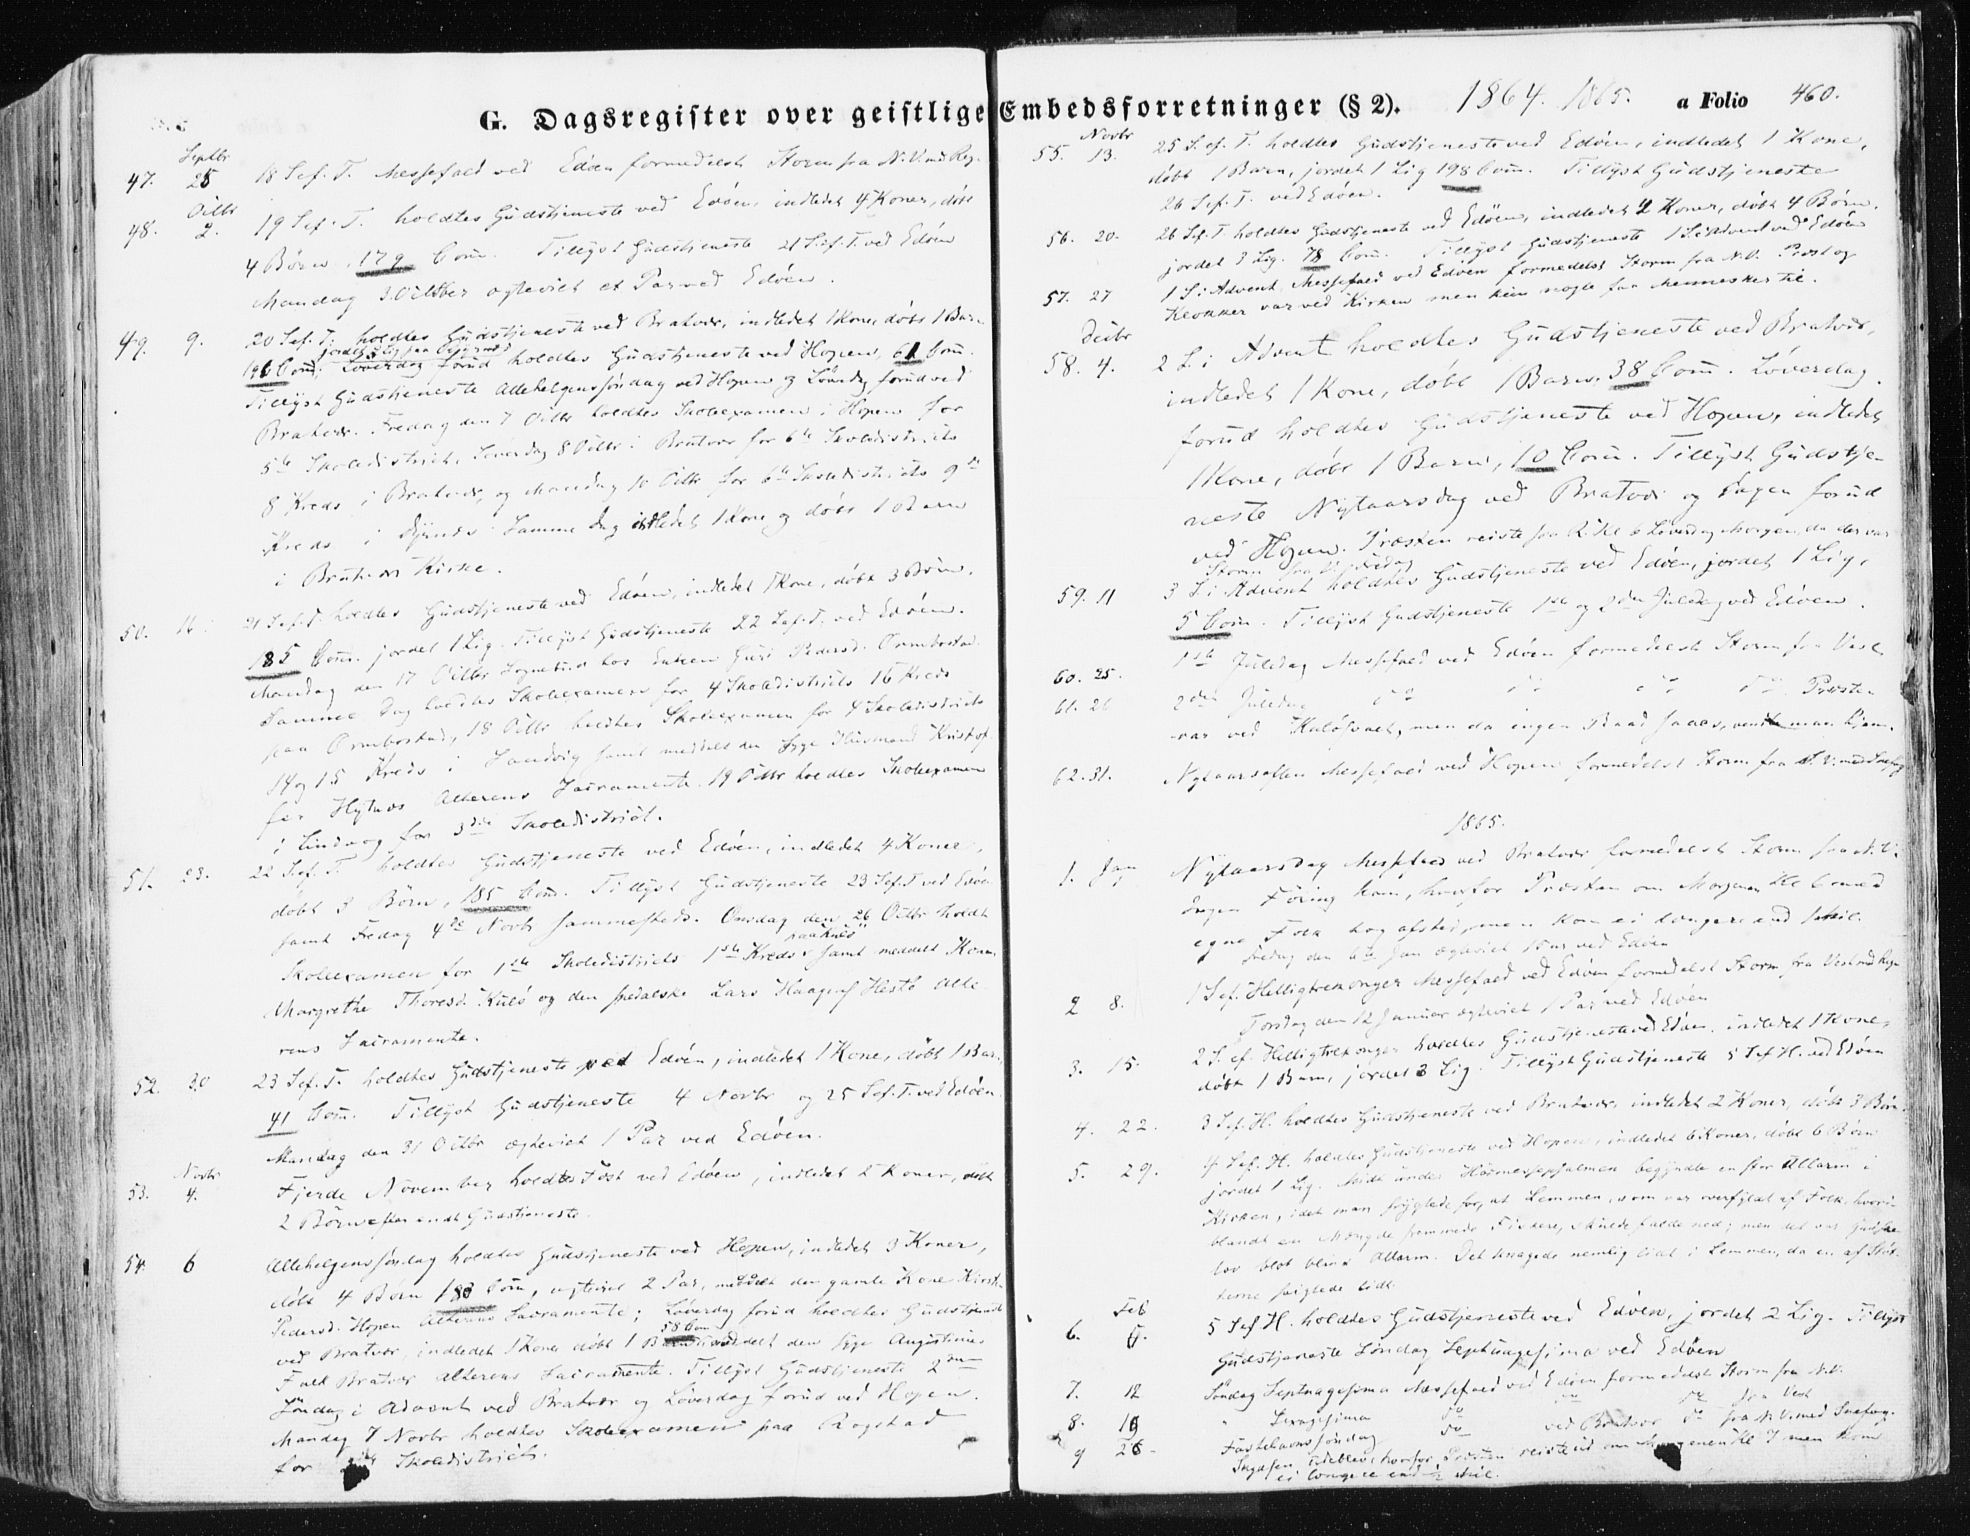 G. Dagsregister over geistlige Embedsforretninger (§ 2). 1864. 1865. a Folio 460.
Septbr
47. 25 18 S. ef. T. Messefald ved Edøen formedelst Storm fra N.V. med Regn.
Octbr
48. 2. 19 S. ef. T. holdtes Gudstjeneste ved Edøen, indledet 4 Koner, døbt
4 Børn, 179 Com. Tillyst Gudstjeneste 21 S. ef. T. ved Edøen
Mandag 3 October egteviet et Par ved Edøen.
49. 9. 20 S. ef. T. holdtes Gudstjeneste ved Bratvær, indledet 1 Kone, døbt 1 Barn
196 Com; Løverdag forud holdtes Gudstjeneste ved Hopen, 61 Com.
Tillyst Gudstjeneste Allehelgenssøndag ved Hopen og Løverdag forud ved
Bratvær. Fredag den 7 Octbr holdtes Skoleexamen i Hopen for
5te Skoledistrict, Løverdag 8 Octbr i Bratvær for 6te Skoledistricts
8 Kreds i Bratvær, og Mandag 10 Octbr for 6te Skoledistricts 9de
Kreds i Samme Dag indledet 1 Kone og døbt 1 Barn
i Bratvær Kirke.
50. 16 21 S. ef. T. holdtes Gudstjeneste ved Edøen, indledet 1 Kone, døbt 3 Børn,
185 Com. jordet 1 Lig. Tillyst Gudstjeneste 22 S. ef. T. ved Edøen.
Mandag den 17 Octbr Sognebud hos Enken Guri Pedersd. Ormbostad.
Samme Dag holdtes Skoleexamen for 4 Skoledistricts 16 Kreds
paa Ormbostad, 18 Octbr holdtes Skoleexamen for 4 Skoledistricts
14 og 15 Kreds i Sandvig samt meddelt den syge Husmand Kristof
fer Hytnes Alterens Sacramente. 19 Octbr holdtes Skoleexamen
i Lindvog for 3die Skoledistrict.
51. 23. 22 S. ef. T. holdtes Gudstjeneste ved Edøen, indledet 4 Koner,
døbt 3 Børn, 185 Com. Tillyst Gudstjeneste 23 S. ef. T. ved Edøen
samt Fredag 4de Novbr sammesteds. Onsdag den 26 Octbr holdt
Skoleexamen for 1ste Skoledistricts 1ste Kreds paa Kulø samt meddelt Konen
Margrethe Thoresd. Kulø og den spedalske Lars Haagens. Hestø Alte-
rens Sacramente.
52. 30 23 S. ef. T. holdtes Gudstjeneste ved Edøen, indledet 1 Kone, døbt 1 Barn,
41 Com. Tillyst Gudstjeneste 4 Novbr og 25 S. ef. T. ved Edøen
Mandag den 31 Octbr egteviet 1 Par ved Edøen.
Novbr
53. 4. Fjerde November holdtes Fest ved Edøen, indledet 2 Koner, døbt
2 Børn efter endt Gudstjeneste.
54. 6 Allehelgenssøndag holdtes Gudstjeneste ved Hopen, indledet 3 Koner,
døbt 4 Børn 183 Com, egteviet 2 Par, meddelt den gamle Kone Kirsti
Pedersd. Hopen Alterens Sacramente; Løverdag forud holdtes Gudstjeneste
ved Bratvær, indledet 1 Kone døbt 1 Barn 58 Com meddelt den syge Augustinus
Falk Bratvær Alterens Sacramente. Tillyst Gudstjeneste 2den
Søndag i Advent ved Bratvær og Løverdag forud ved Hopen.
Mandag 7 Novbr holdtes Skoleexamen paa Rogstad
for Skoledistrict.
Novbr
55. 13. 25 S. ef. T. holdtes Gudstjeneste ved Edøen, indledet 1 Kone,
døbt 1 Barn, jordet 1 Lig 198 Com. Tillyst Gudstjeneste
26 S. ef. T. ved Edøen.
56. 20. 26 S. ef. T. holdtes Gudstjeneste ved Edøen, indledet 2 Koner, døbt 4 Børn,
jordet 3 Lig. 78 Com. Tillyst Gudstjeneste 1 S. i Advent ved Edøen
57. 27 1 S. i Advent. Messefald ved Edøen formedelst Storm fra N.V. Præst og
Klokker var ved Kirken men kun nogle faa Mennesker til.
Decbr
58. 4. 2 S. i Advent holdtes Gudstjeneste ved Bratvær,
indledet 1 Kone, døbt 1 Barn, 38 Com. Løverdag
forud holdtes Gudstjeneste ved Hopen, indledet
1 Kone, døbt 1 Barn, 10 Com. Tillyst Gudstje-
neste Nytaarsdag ved Bratvær og Dagen forud
ved Hopen. Præsten reiste fra Kl 6 Løverdag Morgen, da der var
Storm fra Fredag
59. 11 3 S. i Advent holdtes Gudstjeneste ved Edøen, jordet 1 Lig,
5 Com. Tillyst Gudstjeneste 1ste og 2den Juledag ved Edøen.
60. 25. 1ste Juledag Messefald ved Edøen formedelst Storm fra Vest
61. 26 2den Juledag do do do do Præsten
var ved Kuløsvaet, men da ingen Baad saaes, vendte man hjem.
62. 31. Nytaarsaften Messefald ved Hopen formedelst Storm fra N.V. med Snefog
1865.
1. Jan 1 Nytaarsdag Messefald ved Bratvær formedelst Storm fra N.V.
Ingen Føring kom, hvorfor Præsten om Morgenen Kl 6 med
egne Folk tog afsted, men kom ei længere end 1 Mil.
Fredag den 6te Jan egteviet 1 Par ved Edøen
2 8. 1 S. ef. Helligtrekonger Messefald ved Edøen formedelst Storm fra Vest med Regn
Torsdag den 12 Januar egteviet 1 Par ved Edøen
3. 15. 2 S. ef. Helligtrekonger holdtes Gudstjeneste ved Edøen, indledet 1 Kone,
døbt 1 Barn, jordet 3 Lig. Tillyst Gudstjeneste 5 S. ef. H. ved Edøen
4. 22. 3 S. ef. H. holdtes Gudstjeneste ved Bratvær, indledet 2 Koner, døbt 3 Børn
5. 29. 4 S. ef. H. holdtes Gudstjeneste ved Hopen, indledet 6 Koner, døbt 6 Børn
jordet 1 Lig. Midt under Høimessepsalmen begyndte en stor Allarm i
Kirken, idet man frygtede for, at Lemmen, som var overfyldt af Folk, hvori-
blandt en Mængde fremmede Fiskere, skulde falde ned; men det var Gudske-
lov blot blind Allarm. Det knagede nemlig lidt i Lemmen, da en af Støt-
terne seiglede lidt.
Feb
6. 5. 5 S. ef. H. holdtes Gudstjeneste ved Edøen, jordet 2 Lig. Tillyst
Gudstjeneste Søndag Septuagesima ved Edøen
7. 12 Søndag Septuagesima Messefald ved Edøen formedelst Storm fra N.V.
8. 19 " Sexagesima do do do fra Vest
9 26 Fastelavnssøndag do ved Bratvær do fra N.V. med Snefog.
Skydsen udeblev, hvorfor Præsten reiste ud om Morgenen Kl 7 men kom
ei længere end ½ Mil.